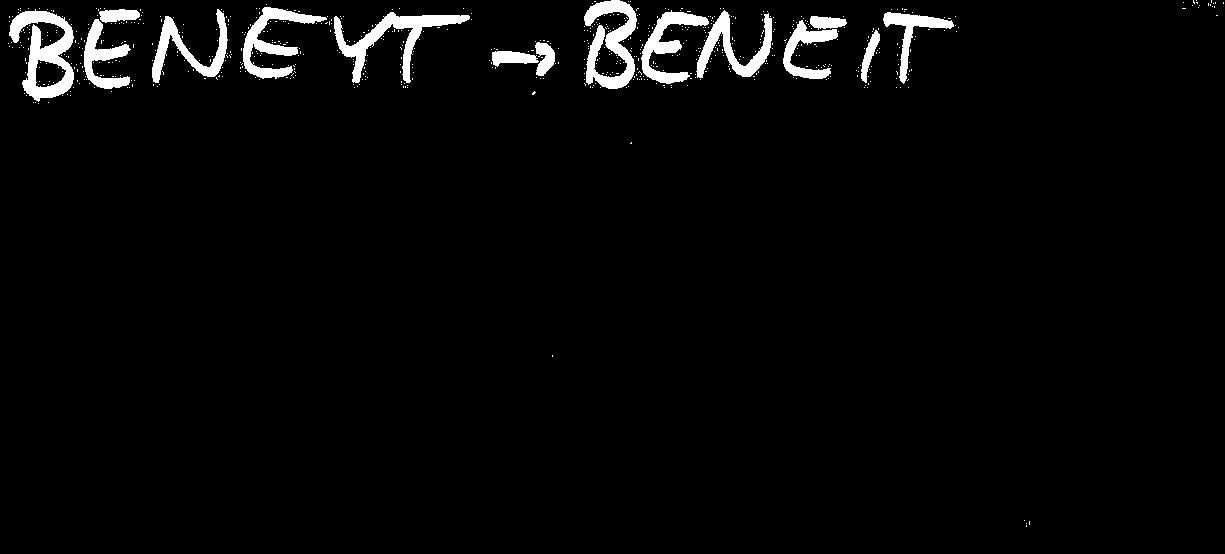 BENEYT → BENEIT